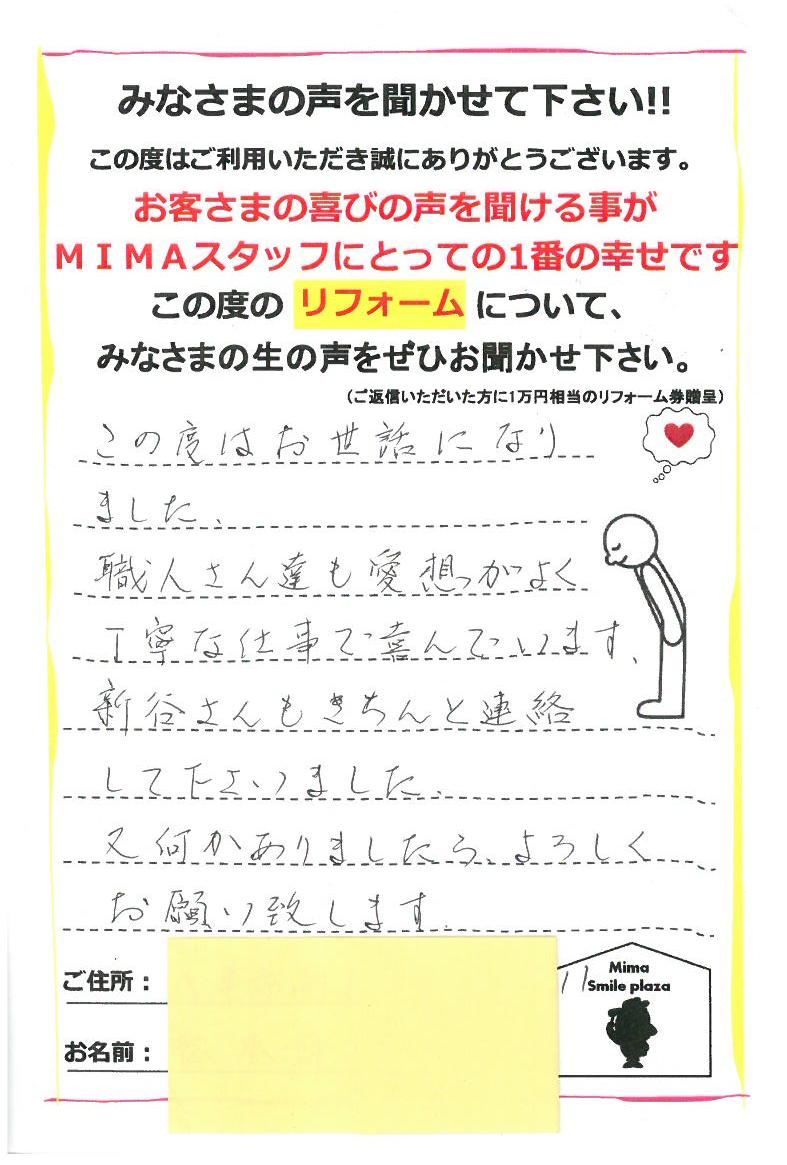 みなさまの声を聞かせて下さい!!
この度はご利用いただき誠にありがとうございます。
お客さまの喜びの声を聞ける事が
ＭＩＭＡスタッフにとっての1番の幸せです
この度の リフォーム について、
みなさまの生の声をぜひお聞かせ下さい。
（ご返信いただいた方に1万円相当のリフォーム券贈呈）
この度はお世話になり
ました、
職人さん達も愛想がよく
丁寧な仕事で喜んでいます、
新谷さんもきちんと連絡
して下さいました、
又何かありましたら、よろしく
お願い致します.
ご住所：
11
Mima
Smile plaza
お名前：